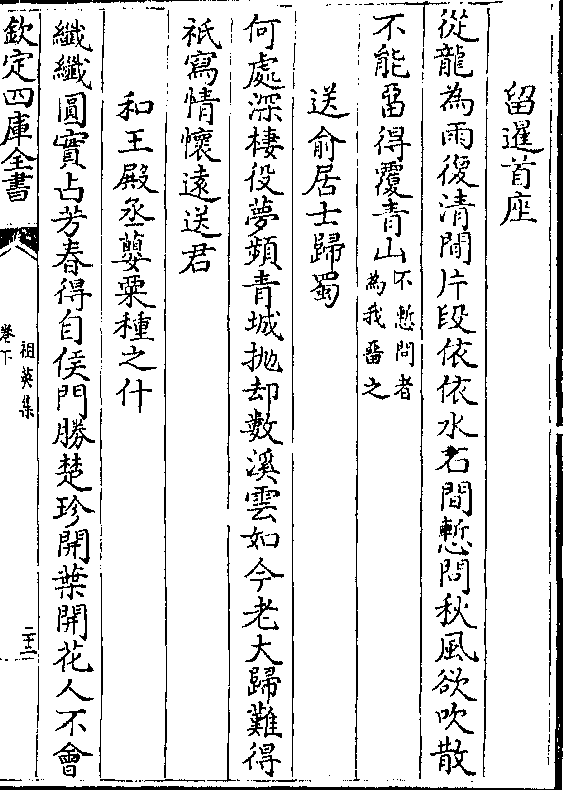 留暹首座
從龍為雨復清閒片段依依水石間慙問秋風欲吹散
不能畱得覆青山不慙問者為我畱之
送俞居士歸蜀
何處深棲役夢頻青城抛却數溪雲如今老大歸難得
祇寫情懷遠送君
和王殿丞甖粟種之什
纖纖圓實占芳春得自侯門勝楚珍開葉開花人不會
欽定四庫全書
祖英集
卷下
二十二